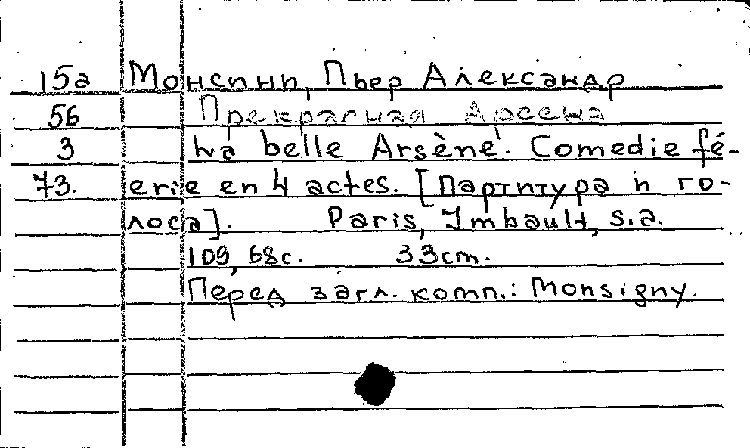 15а Монсиньи, Пьер Александр
5б Прекрасная Арсена
3 La belle Arsène. Comedie fé-
73. erie en 4 actes. [Партитура и го-
лоса]. Paris, Imbault, s.a.
109, 68с. 33cm.
Перед загл. комп.: Monsigny.